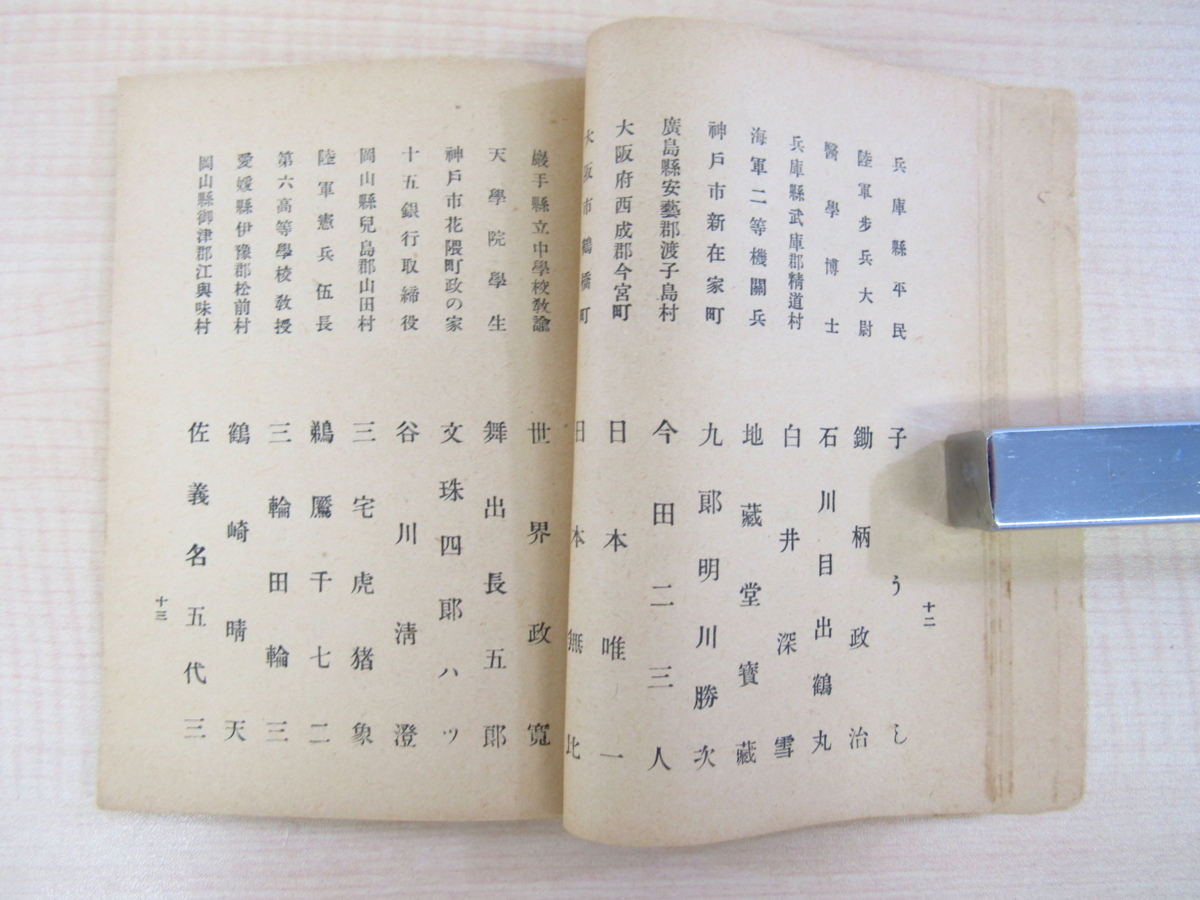 兵庫縣平民 子うし
陸軍步兵大尉 鋤柄政治
醫學博士 石川目出鶴丸
兵庫縣武庫郡精道村 白井深雪
海軍二等機關兵 地藏堂寶藏
神戶市新在家町 九郞明川勝次
廣島縣安藝郡渡子島村 今田二三人
大阪府西成郡今宮町 日本唯一
大阪市鶴橋町 日本無比
十二
巖手縣立中學校敎諭 世界政寬
天學院學生 舞出長五郞
神戶市花隈町政の家 文珠四郞ハツ
十五銀行取締役 谷川淸澄
岡山縣兒島郡山田村 三宅虎猪象
陸軍憲兵伍長 鵜鷹千七二
第六高等學校敎授 三輪田輪三
愛媛縣伊豫郡松前村 鶴崎晴天
岡山縣御津郡江與味村 佐義名五代三
十三